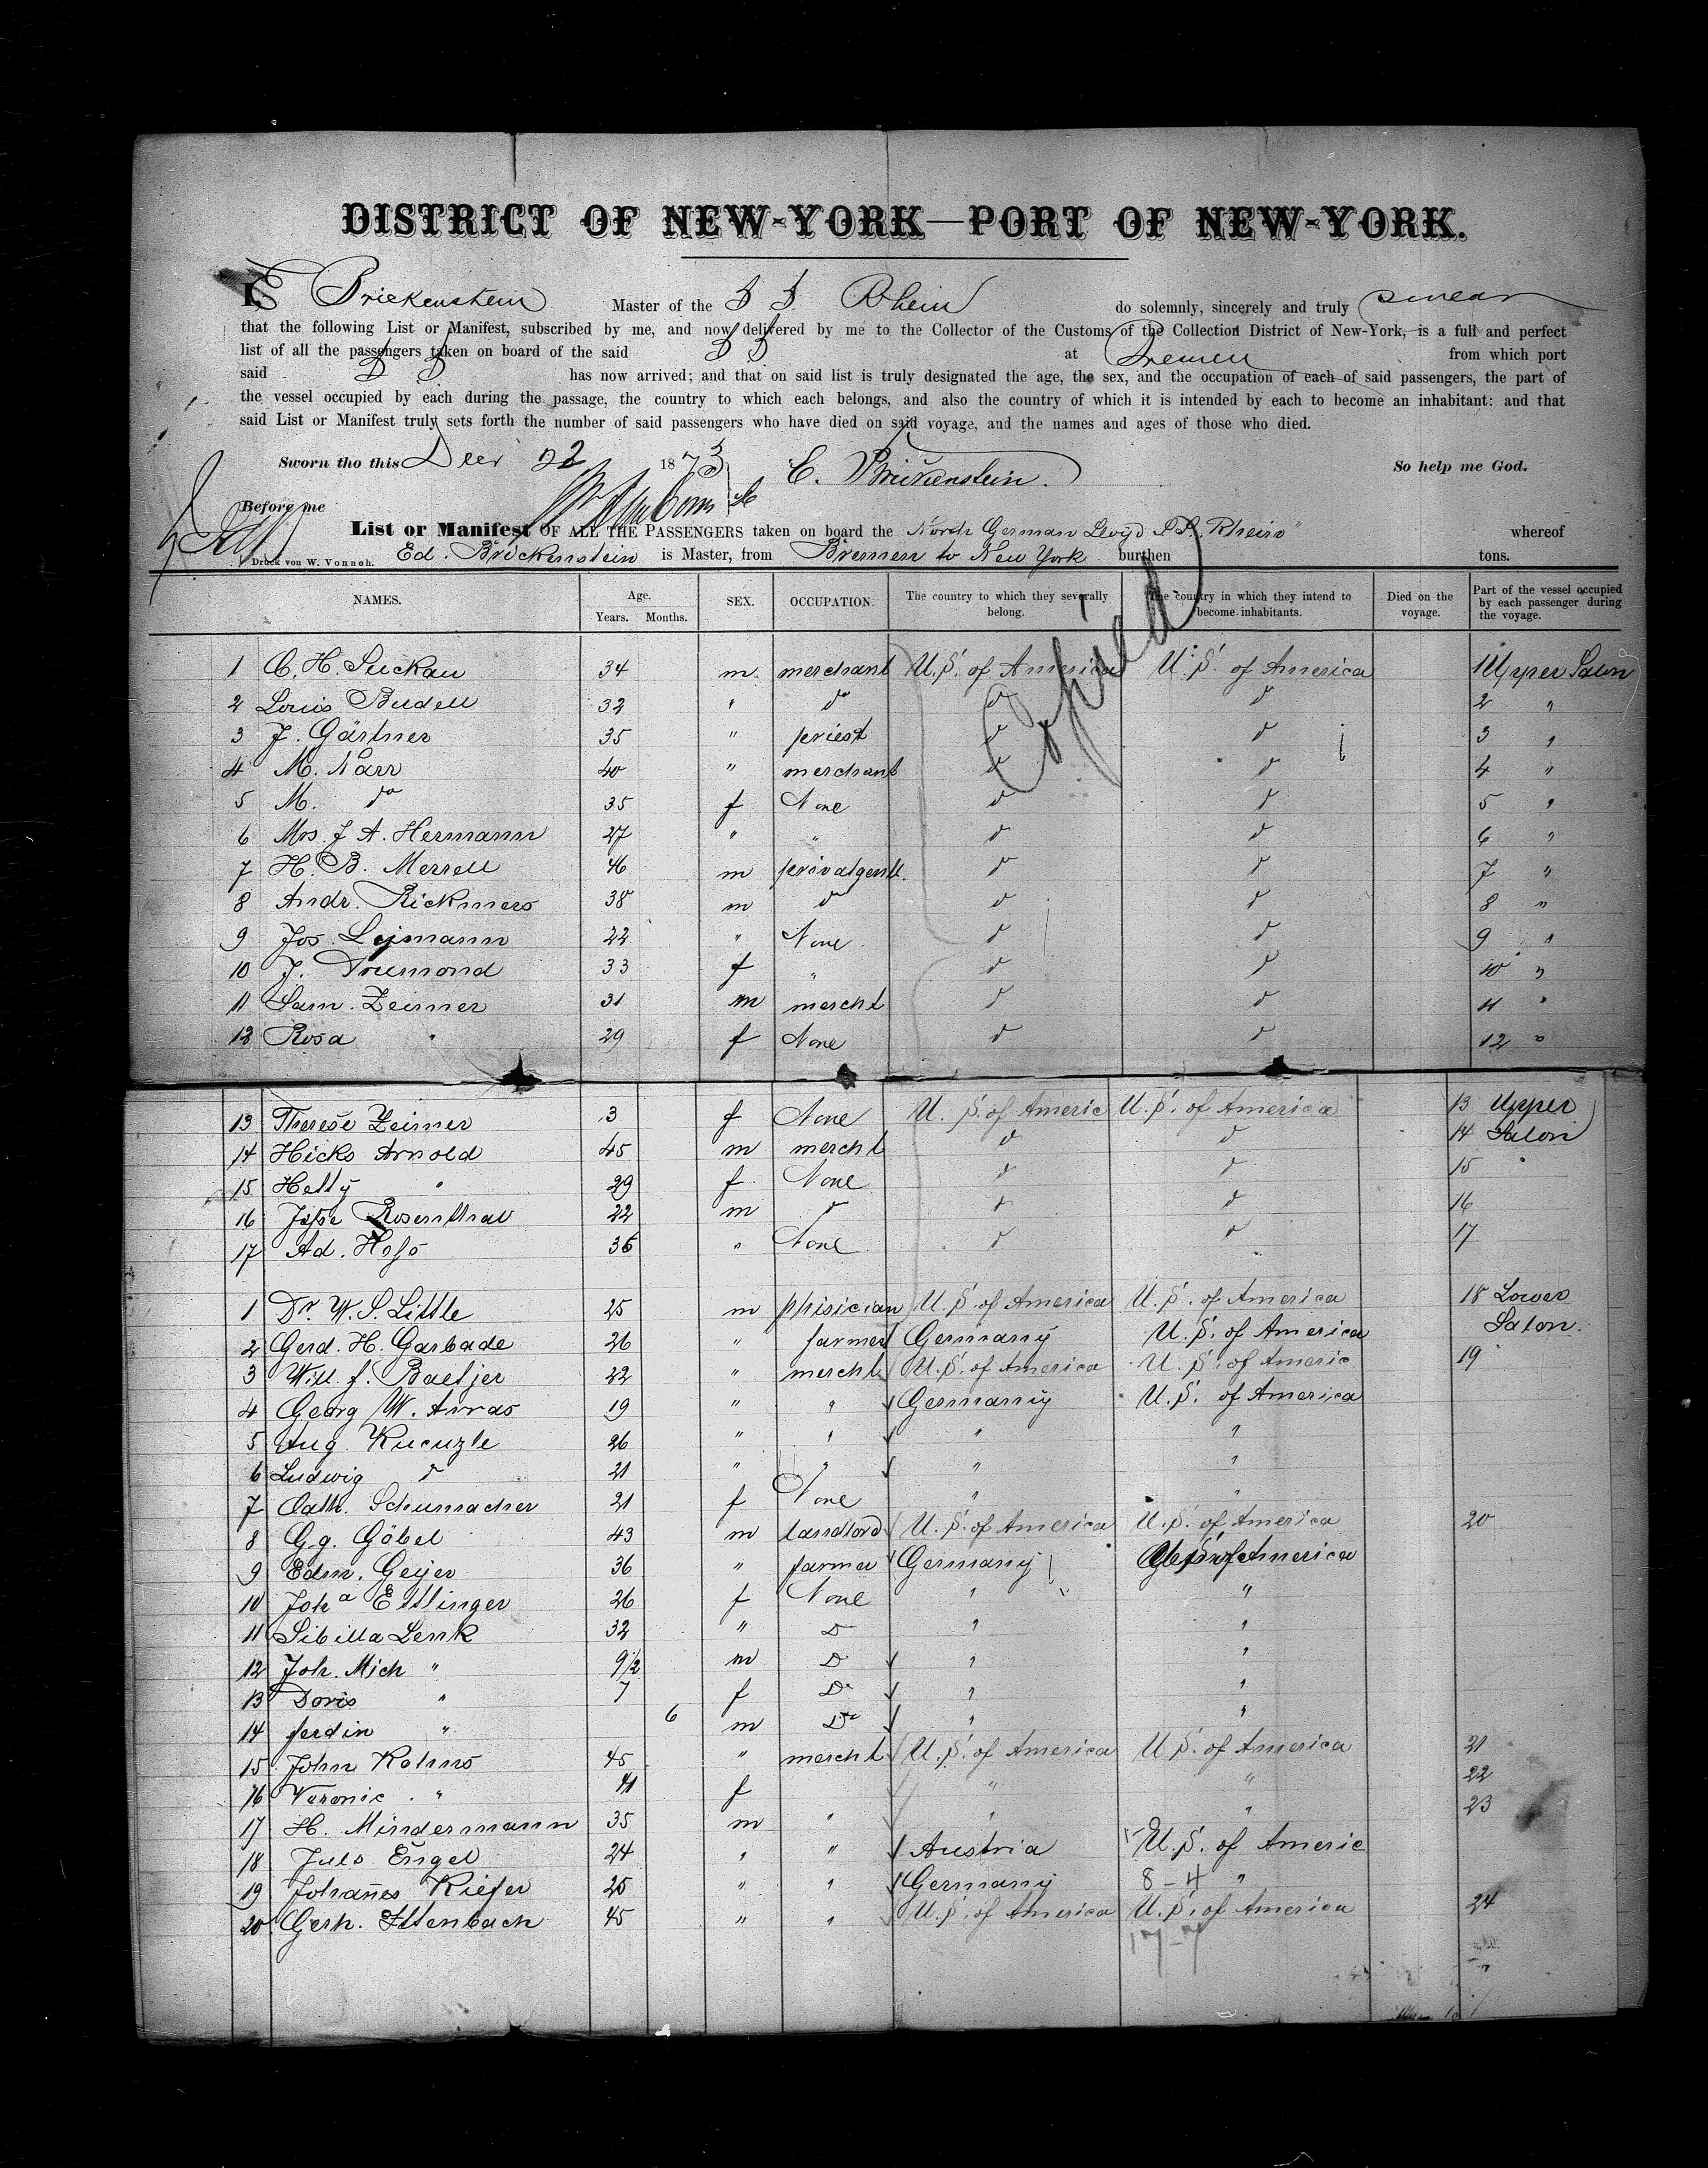 DISTRICT OF NEW-YORK—PORT OF NEW-YORK.
I, E Brickenstein Master of the S S. Rhein do solemnly, sincerely and truly swear
that the following List or Manifest, subscribed by me, and now delivered by me to the Collector of the Customs of the Collection District of New-York, is a full and perfect
list of all the passengers taken on board of the said S S at Bremen from which port
said S S has now arrived; and that on said list is truly designated the age, the sex, and the occupation of each of said passengers, the part of
the vessel occupied by each during the passage, the country to which each belongs, and also the country of which it is intended by each to become an inhabitant: and that
said List or Manifest truly sets forth the number of said passengers who have died on said voyage, and the names and ages of those who died.
Sworn tho this Decr 22 1873 E. Brickenstein. So help me God.
Before me
List or Manifest OF ALL THE PASSENGERS taken on board the North German Lloyd S.S. "Rhein" whereof
Druck von W. Vonnoh. Ed. Brickenstein is Master, from Bremen to New York burthen tons.
Copied
NAMES. Age. Years. Months. SEX. OCCUPATION. The country to which they severally belong. The country in which they intend to become inhabitants. Died on the voyage. Part of the vessel occupied by each passenger during the voyage.
1 C. H. Suckau 34 m merchant U. S. of America U. S. of America 1 Upper Salon
2 Louis Budell 32 " do do do 2 "
3 J. Gärtner 35 " priest do do 3 "
4 M. Narr 40 " merchant do do 4 "
5 M. do 35 f None do do 5 "
6 Mrs. J A. Hermann 27 " " do do 6 "
7 H. B. Merrell 46 m privatgentl. do do 7 "
8 Andr. Rickmers 38 m do do do 8 "
9 Jos. 22 " None do do 9 "
10 J. Drumond 33 f " do do 10 "
11 Sam. Zeimer 31 m mercht do do 11 "
12 Rosa " 29 f None do do 12 "
13 Therese Zeimer 3 f None U. S. of Americ U. S. of America 13 Upper
14 Hicks Arnold 45 m mercht do do 14 Salon
15 Hetty " 29 f None do do 15 "
16 Rosenthal 22 m do do do 16
17 Ad. 36 " None do do 17
1 Dr. W. S. Little 25 m phisician U. S. of America U. S. of America 18 Lower
2 Gerd. H. Garbade 26 " farmer Germany U. S. of America Salon.
3 Will. f. Baetjer 22 " mercht U. S. of America U. S. of Americ 19
4 Georg W. Arras 19 " " Germany U. S. of America
5 Aug. Kuenzle 26 " " " "
6 Ludwig do 21 " " " "
7 Cath. Schumacher 21 f None " "
8 Gg. Göbel 43 m landlord U. S. of America U. S. of America 20
9 Edm. Geijer 36 " farmer Germany U. S. of America
10 Joha Ettlinger 26 f None " "
11 Sibilla Lenk 32 " Do " "
12 Joh. Mich " 9 1/2 m Do " "
13 Doris " 7 f Do " "
14 ferdin " 6 m Do " "
15 John Rohms 45 " mercht U. S. of America U. S. of America 21
16 Veronic " 41 f " " 22
17 H. Mindermann 35 m " " " 23
18 Juls Engel 24 " " Austria U. S. of Americ
19 Johañes Kiefer 25 " " Germany 8-4 "
20 Gerh. Ittenbach 45 " " U. S. of America U. S. of America 24
17-7